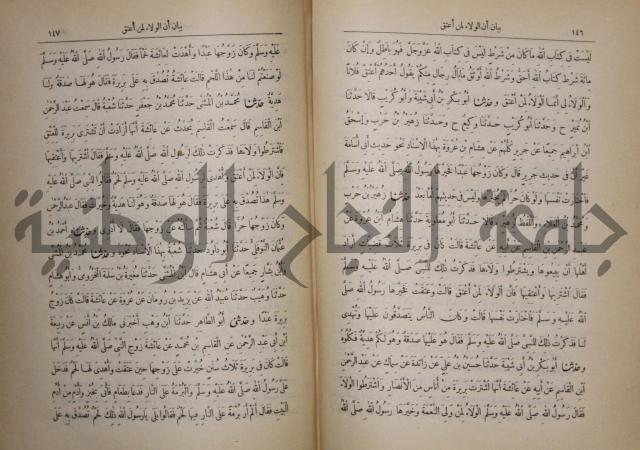 ١٤٦
بيان أن الولاء لمن أعتق
لَيْسَتْ فِي كِتَابِ اللّٰهِ مَا كَانَ مِنْ شَرْطٍ لَيْسَ فِي كِتَابِ اللّٰهِ عَزَّ وَجَلَّ فَهُوَ بَاطِلٌ وَإِنْ كَانَ
مِائَةَ شَرْطٍ كِتَابُ اللّٰهِ أَحَقُّ وَشَرْطُ اللّٰهِ أَوْثَقُ مَا بَالُ رِجَالٍ مِنْكُمْ يَقُولُ أَحَدُهُمْ أَعْتِقْ فُلَانًا
وَالْوَلَاءُ لِي إِنَّمَا الْوَلَاءُ لِمَنْ أَعْتَقَ و حدثنا أَبُو بَكْرِ بْنُ أَبِي شَيْبَةَ وَأَبُو كُرَيْبٍ قَالَا حَدَّثَنَا
ابْنُ نُمَيْرٍ ح وَحَدَّثَنَا أَبُو كُرَيْبٍ حَدَّثَنَا وَكِيعٌ ح وَحَدَّثَنَا زُهَيْرُ بْنُ حَرْبٍ وَإِسْحٰقُ
ابْنُ إِبْرَاهِيمَ جَمِيعًا عَنْ جَرِيرٍ كُلُّهُمْ عَنْ هِشَامِ بْنِ عُرْوَةَ بِهٰذَا الْإِسْنَادِ نَحْوَ حَدِيثِ أَبِي أُسَامَةَ
فِي حَدِيثِ جَرِيرٍ قَالَ وَكَانَ زَوْجُهَا عَبْدًا فَخَيَّرَهَا رَسُولُ اللّٰهِ صَلَّى اللّٰهُ عَلَيْهِ وَسَلَّمَ
فَاخْتَارَتْ نَفْسَهَا وَلَوْ كَانَ حُرًّا وَلَيْسَ فِي حَدِيثِهِمْ أَمَّا بَعْدُ حدثنا زُهَيْرُ بْنُ حَرْبٍ
وَمُحَمَّدُ بْنُ الْعَلَاءِ وَاللَّفْظُ لِزُهَيْرٍ قَالَا حَدَّثَنَا أَبُو مُعَاوِيَةَ حَدَّثَنَا هِشَامُ ابْنُ عُرْوَةَ عَنْ
عَبْدِ الرَّحْمٰنِ بْنِ الْقَاسِمِ عَنْ أَبِيهِ عَنْ عَائِشَةَ قَالَتْ كَانَ فِي بَرِيرَةَ أَرَادَ
أَهْلُهَا أَنْ يَبِيعُوهَا وَيَشْتَرِطُوا وَلَاءَهَا فَذَكَرْتُ ذٰلِكَ لِلنَّبِيِّ صَلَّى اللّٰهُ عَلَيْهِ وَسَلَّمَ
فَقَالَ اشْتَرِيهَا وَأَعْتِقِيهَا فَإِنَّ الْوَلَاءَ لِمَنْ أَعْتَقَ قَالَتْ وَعَتَقَتْ فَخَيَّرَهَا رَسُولُ اللّٰهِ صَلَّى
اللّٰهُ عَلَيْهِ وَسَلَّمَ فَاخْتَارَتْ نَفْسَهَا قَالَتْ وَكَانَ النَّاسُ يَتَصَدَّقُونَ عَلَيْهَا وَتُهْدِي
لَنَا فَذَكَرْتُ ذٰلِكَ لِلنَّبِيِّ صَلَّى اللّٰهُ عَلَيْهِ وَسَلَّمَ فَقَالَ هُوَ عَلَيْهَا صَدَقَةٌ وَهُوَ لَكُمْ هَدِيَّةٌ فَكُلُوهُ
و حدثنا أَبُو بَكْرِ بْنُ أَبِي شَيْبَةَ حَدَّثَنَا حُسَيْنُ بْنُ عَلِيٍّ عَنْ زَائِدَةَ عَنْ سِمَاكٍ عَنْ عَبْدِ الرَّحْمٰنِ
ابْنِ الْقَاسِمِ عَنْ أَبِيهِ عَنْ عَائِشَةَ أَنَّهَا اشْتَرَتْ بَرِيرَةَ مِنْ أُنَاسٍ مِنَ الْأَنْصَارِ وَاشْتَرَطُوا الْوَلَاءَ
فَقَالَ رَسُولُ اللّٰهِ صَلَّى اللّٰهُ عَلَيْهِ وَسَلَّمَ الْوَلَاءُ لِمَنْ وَلِيَ النِّعْمَةَ وَخَيَّرَهَا رَسُولُ اللّٰهِ صَلَّى اللّٰهُ
بيان أن الولاء لمن أعتق
١٤٧
عَلَيْهِ وَسَلَّمَ وَكَانَ زَوْجُهَا عَبْدًا وَأَهْدَتْ لِعَائِشَةَ لَحْمًا فَقَالَ رَسُولُ اللّٰهِ صَلَّى اللّٰهُ عَلَيْهِ وَسَلَّمَ
لَوْ صَنَعْتُمْ لَنَا مِنْ هٰذَا اللَّحْمِ قَالَتْ عَائِشَةُ تُصُدِّقَ بِهِ عَلَى بَرِيرَةَ فَقَالَ هُوَ لَهَا صَدَقَةٌ وَلَنَا
هَدِيَّةٌ حدثنا مُحَمَّدُ بْنُ الْمُثَنَّى حَدَّثَنَا مُحَمَّدُ بْنُ جَعْفَرٍ حَدَّثَنَا شُعْبَةُ قَالَ سَمِعْتُ عَبْدَ الرَّحْمٰنِ
ابْنَ الْقَاسِمِ قَالَ سَمِعْتُ الْقَاسِمَ يُحَدِّثُ عَنْ عَائِشَةَ أَنَّهَا أَرَادَتْ أَنْ تَشْتَرِيَ بَرِيرَةَ لِلْعِتْقِ
فَاشْتَرَطُوا وَلَاءَهَا فَذَكَرَتْ ذٰلِكَ لِرَسُولِ اللّٰهِ صَلَّى اللّٰهُ عَلَيْهِ وَسَلَّمَ فَقَالَ اشْتَرِيهَا وَأَعْتِقِيهَا
فَإِنَّ الْوَلَاءَ لِمَنْ أَعْتَقَ وَأُهْدِيَ لِرَسُولِ اللّٰهِ صَلَّى اللّٰهُ عَلَيْهِ وَسَلَّمَ لَحْمٌ فَقَالُوا لِلنَّبِيِّ صَلَّى اللّٰهُ عَلَيْهِ
وَسَلَّمَ هٰذَا تُصُدِّقَ بِهِ عَلَى بَرِيرَةَ فَقَالَ هُوَ لَهَا صَدَقَةٌ وَهُوَ لَنَا هَدِيَّةٌ وَخُيِّرَتْ فَقَالَ عَبْدُ الرَّحْمٰنِ
وَكَانَ زَوْجُهَا حُرًّا قَالَ شُعْبَةُ ثُمَّ سَأَلْتُهُ عَنْ زَوْجِهَا فَقَالَ لَا أَدْرِي و حدثناه أَحْمَدُ بْنُ
عُثْمَانَ النَّوْفَلِيُّ حَدَّثَنَا أَبُو دَاوُدَ حَدَّثَنَا شُعْبَةُ بِهٰذَا الْإِسْنَادِ نَحْوَهُ و حدثنا مُحَمَّدُ بْنُ الْمُثَنَّى
وَابْنُ بَشَّارٍ جَمِيعًا عَنْ أَبِي هِشَامٍ قَالَ ابْنُ الْمُثَنَّى حَدَّثَنَا مُغِيرَةُ بْنُ سَلَمَةَ الْمَخْزُومِيُّ وَأَبُو هِشَامٍ
حَدَّثَنَا وُهَيْبٌ حَدَّثَنَا عُبَيْدُ اللّٰهِ عَنْ يَزِيدَ بْنِ رُومَانَ عَنْ عُرْوَةَ عَنْ عَائِشَةَ قَالَتْ كَانَ زَوْجُ
بَرِيرَةَ عَبْدًا و حدثني أَبُو الطَّاهِرِ حَدَّثَنَا ابْنُ وَهْبٍ أَخْبَرَنِي مَالِكُ بْنُ أَنَسٍ عَنْ رَبِيعَةَ
ابْنِ أَبِي عَبْدِ الرَّحْمٰنِ عَنِ الْقَاسِمِ بْنِ مُحَمَّدٍ عَنْ عَائِشَةَ زَوْجِ النَّبِيِّ صَلَّى اللّٰهُ عَلَيْهِ وَسَلَّمَ أَنَّهَا
قَالَتْ كَانَ فِي بَرِيرَةَ ثَلَاثُ سُنَنٍ خُيِّرَتْ عَلَى زَوْجِهَا حِينَ عَتَقَتْ وَأُهْدِيَ لَهَا لَحْمٌ فَدَخَلَ
عَلَيَّ رَسُولُ اللّٰهِ صَلَّى اللّٰهُ عَلَيْهِ وَسَلَّمَ وَالْبُرْمَةُ عَلَى النَّارِ فَدَعَا بِطَعَامٍ فَأُتِيَ بِخُبْزٍ وَأُدْمٍ مِنْ أُدْمِ
الْبَيْتِ فَقَالَ أَلَمْ أَرَ بُرْمَةً عَلَى النَّارِ فِيهَا لَحْمٌ فَقَالُوا بَلَى يَا رَسُولَ اللّٰهِ ذٰلِكَ لَحْمٌ تُصُدِّقَ بِهِ عَلَى
جامعة النجاح الوطنية